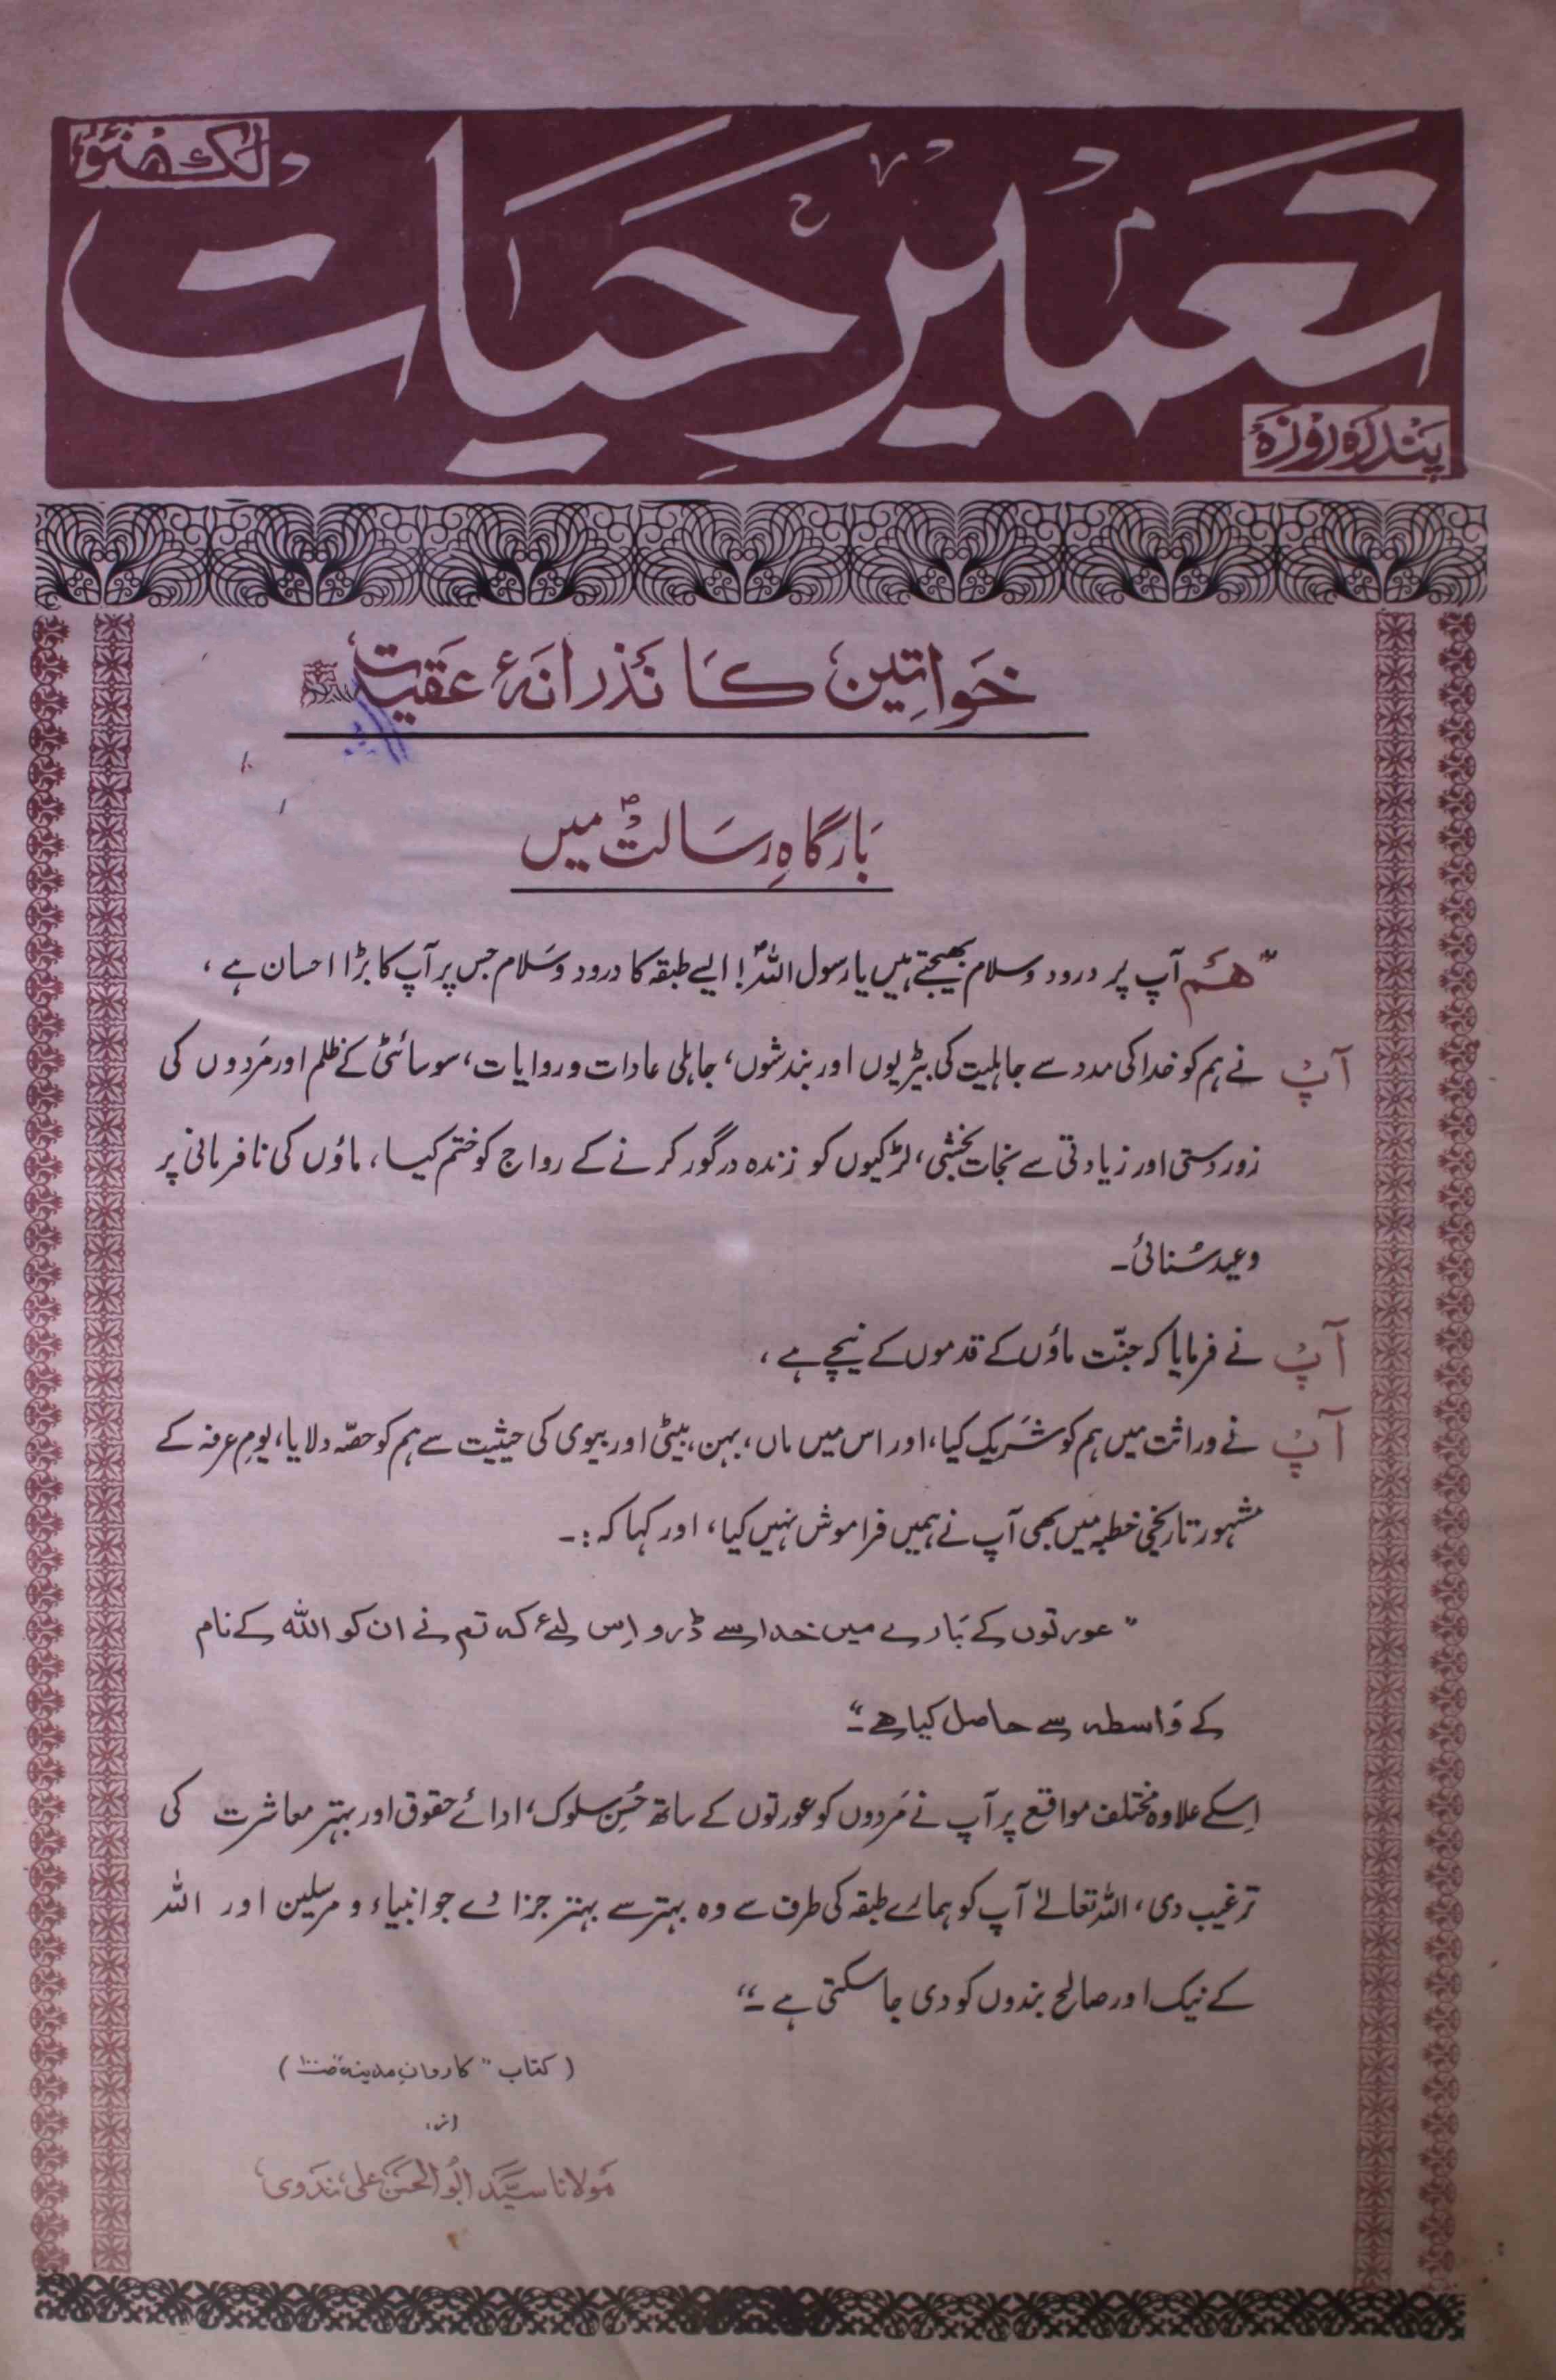 لکھنؤ
تعمیر حیات
پندرہ روزہ
خواتین کا نذرانۂ عقیدت
بارگاہِ رسالتؐ میں
”ہم آپ پر درود و سلام بھیجتے ہیں یا رسول اللہؐ! ایسے طبقہ کا درود و سلام جس پر آپ کا بڑا احسان ہے،
آپؐ نے ہم کو خدا کی مدد سے جاہلیت کی بیڑیوں اور بندشوں، جاہلی عادات و روایات، سوسائٹی کے ظلم اور مَردوں کی
زور دستی اور زیادتی سے نجات بخشی، لڑکیوں کو زندہ درگور کرنے کے رواج کو ختم کیا، ماؤں کی نافرمانی پر
وعید سُنائی۔
آپؐ نے فرمایا کہ جنّت ماؤں کے قدموں کے نیچے ہے،
آپؐ نے وراثت میں ہم کو شریک کیا، اور اس میں ماں، بہن، بیٹی اور بیوی کی حیثیت سے ہم کو حصّہ دلایا، یومِ عرفہ کے
مشہور تاریخی خطبہ میں بھی آپ نے ہمیں فراموش نہیں کیا، اور کہا کہ:۔
”عورتوں کے بارے میں خدا سے ڈرو اِس لئے کہ تم نے ان کو اللہ کے نام
کے واسطہ سے حاصل کیا ہے۔“
اِسکے علاوہ مختلف مواقع پر آپ نے مَردوں کو عورتوں کے ساتھ حُسنِ سلوک، ادائے حقوق اور بہتر معاشرت کی
ترغیب دی، اللہ تعالےٰ آپ کو ہمارے طبقہ کی طرف سے وہ بہتر سے بہتر جزا دے جو انبیاء و مرسلین اور اللہ
کے نیک اور صالح بندوں کو دی جا سکتی ہے۔“
(کتاب ”کاروانِ مدینہ“ ص۱۰۰)
از:
مولانا سیّد ابُو الحسَن علی ندَوی